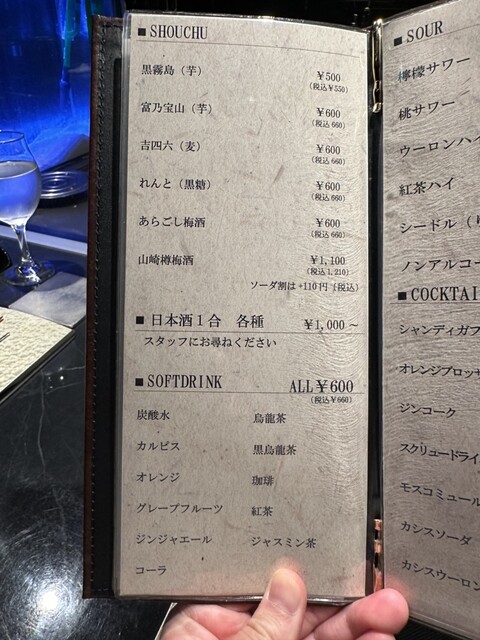 ■ SHOUCHU
黒霧島（芋） ￥500
（税込￥550）
富乃宝山（芋） ￥600
（税込 660）
吉四六（麦） ￥600
（税込 660）
れんと（黒糖） ￥600
（税込 660）
あらごし梅酒 ￥600
（税込 660）
山崎樽梅酒 ￥1,100
（税込 1,210）
ソーダ割は +110 円（税込）
■ 日本酒１合　各種 ￥1,000 ～
スタッフにお尋ねください
■ SOFTDRINK ALL￥600
（税込￥660）
炭酸水 烏龍茶
カルピス 黒烏龍茶
オレンジ 珈琲
グレープフルーツ 紅茶
ジンジャエール ジャスミン茶
コーラ
■ SOUR
檸檬サワー
桃サワー
ウーロンハイ
紅茶ハイ
シードル（
ノンアルコー
■ COCKTAI
シャンディガフ
オレンジブロッサ
ジンコーク
スクリュードライ
モスコミュール
カシスソーダ
カシスウーロン